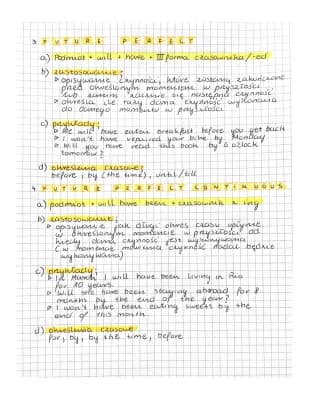 3 FUTURE PERFECT
a) Podmiot + will + have + III forma czasownika/-ed
b) zastosowanie:
opisywanie czynności, które zostaną zakończone
przed określonym momentem w przyszłości
lub zanim zacznie się następna czynność
określa ile razy dana czynność wykonana
do danego momentu w przyszłości
c) przykłady:
We will have eaten breakfast before you get back
I won't have repaired your bike by Monday
Will you have read this book by 6 o'clock
tomorrow?
d) określenia czasowe:
before, by (the time), until/till
4 FUTURE PERFECT CONTINUOUS
a) podmiot + will have been + czasownik z ing
b) zastosowanie:
opisywanie jak długi okres czasu upłynie
w określonym momencie w przyszłości od
kiedy dana czynność jest wykonywana
(w momencie mówienia czynność nadal będzie
wykonywana)
c) przykłady:
In March I will have been living in Rio
for 10 years.
Will she have been staying abroad for 8
months by the end of the year?
I won't have been eating sweets by the
end of this month.
d) określenia czasowe
for, by, by the time, before